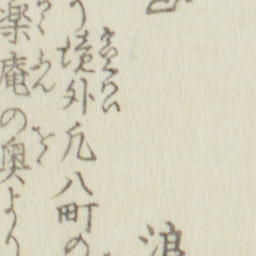 浪
境外凡八町の
楽庵の奥より